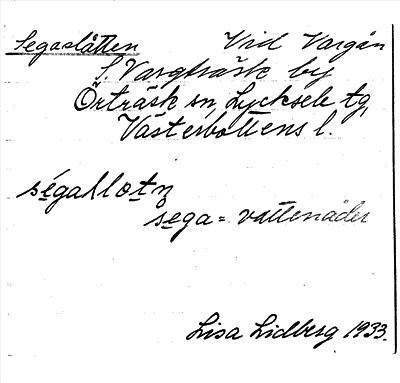 Segaslåtten Vid Vargån
S. Vargträsk by
Örträsk sn, Lycksele tg,
Västerbottens l.
sega = vattenåder
Lisa Lidberg 1933.